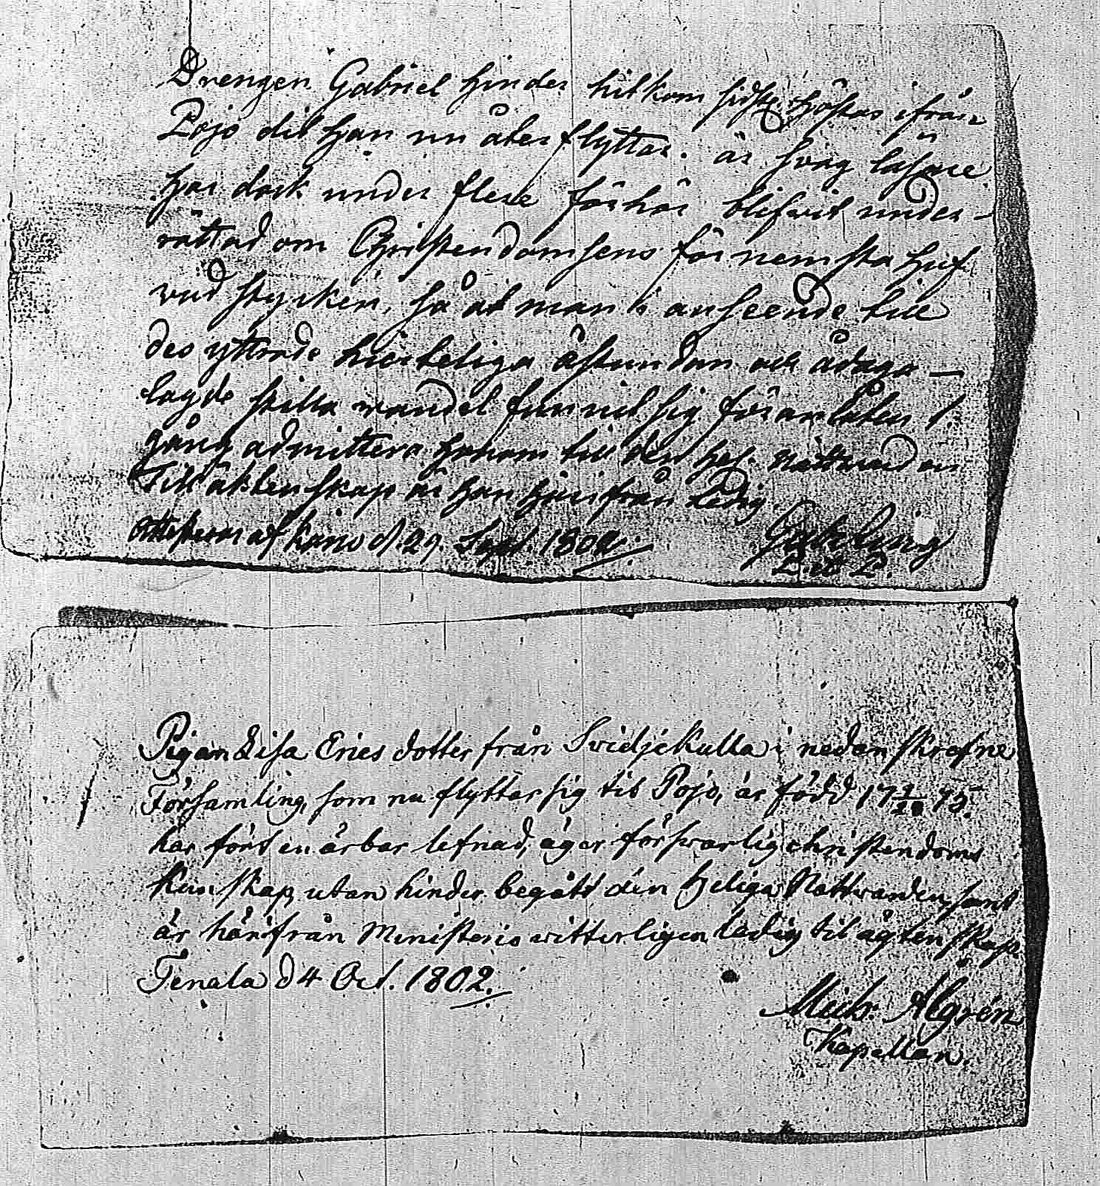 Drengen Gabriel Hinder hitkom sidste Höstas ifrån
Pojo dit han nu åter flyttar. är svag läsare.
har dock under flere förhör blifvit under-
rättad om Christendomsens förnemsta huf
vud stycken, så at man i anseende till
des yttrade hierteliga åstundan och ådaga-
lagde stilla wandel funnit sig föranlåten 1.
gång admittera honom till den hel. nattwarden
Till äktenskap är han härifrån ledig.
Attesteras af Karis d. 29 Sept. 1802.
Pigan Lisa Ericsdotter från Svidjekulla i nedanskrefne
Församling, som nu flyttar sig til Pojo, är född 17 75.
har fört en ärbar lefnad, äger försvarlig christendoms
kunskap, utan hinder begått den Heliga Nattwarden, samt
är härifrån Ministerio witterligen ledig til ägtenskap.
Tenala d 4 Oct. 1802.
Mich: Algrén
Kapellan.